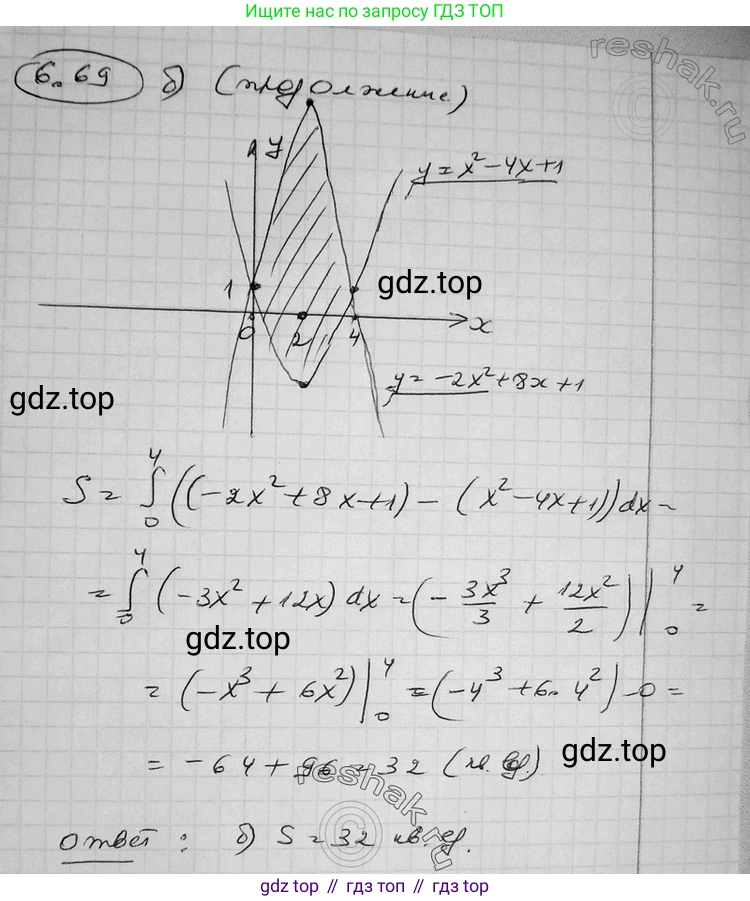 Ищите нас по запросу ГДЗ ТОП
reshak.ru
6.69 б) (продолжение)
y
y = x² - 4x + 1
1
gdz.top
0 2 4 x
y = -2x² + 8x + 1
gdz.top
S = ∫₀⁴ ((-2x² + 8x + 1) - (x² - 4x + 1)) dx =
= ∫₀⁴ (-3x² + 12x) dx = (-3x³/3 + 12x²/2) |₀⁴ =
gdz.top
= (-x³ + 6x²) |₀⁴ = (-4³ + 6·4²) - 0 =
= -64 + 96 = 32 (кв. ед.)
gdz.top
reshak.ru
Ответ: б) S = 32 кв. ед.
gdz.top // гдз топ // gdz top